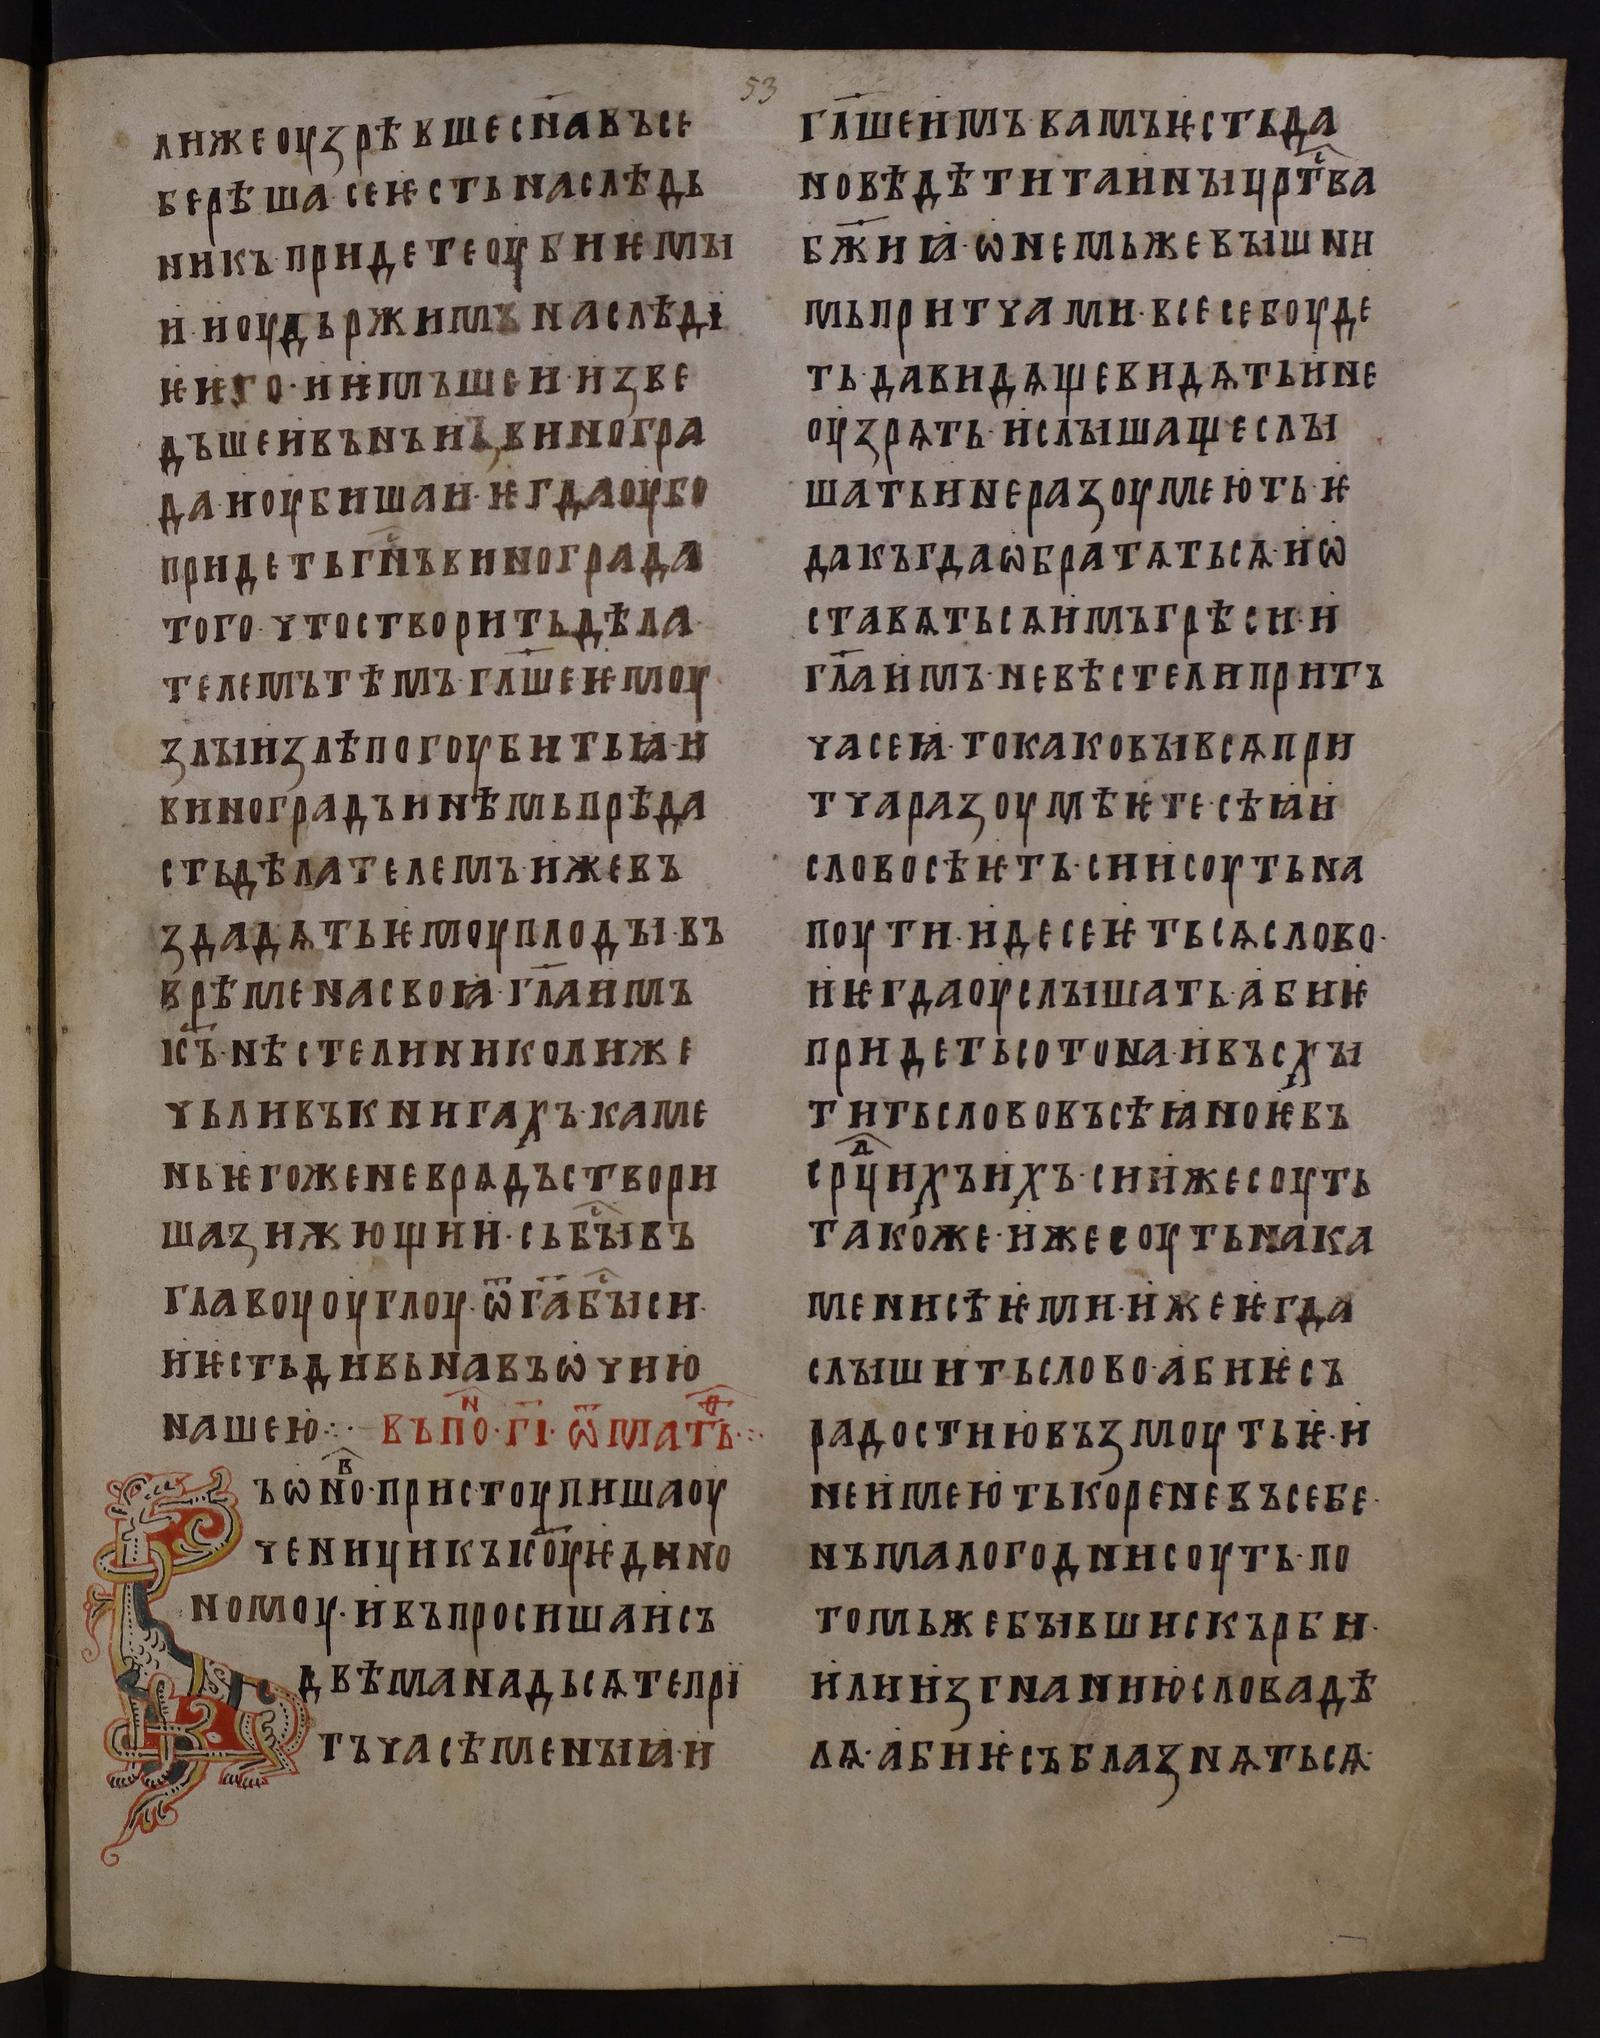 53
лижеоузрѣвшесн҃авъсе
берѣша·сеѥстьнаслѣдь
никъ·придетеоубиѥмы
и·ноудьржимънаслѣдi
ѥѥго·иимъшеи·изве
дъшеивънъизвиногра
да·ноубишаи·ѥгдаоубо
придетьгн҃ъвинограда
того·чтостворитьдѣла
телемътѣмъ·гл҃шеѥмоу
злыизлѣпогоубитьꙗ·и
виноградъинѣмьпрѣда
стьдѣлателемъ·ижевъ
здадѧтьѥмоуплоды·въ
врѣменасвоꙗ·гл҃аимъ
iс҃ъ·нѣстелиниколиже
чьливъкнигахъ·каме
ньѥгоженеврѧдъствори
шазижющии·сьбы҇въ
главоуоуглоу·ѿг҃абы҇си·
иѥстьдивьнавъѡчию
нашею჻ въпо҇н·г҃i·ѿмат҇ѳ·
ъѡно·пристоупишаоу
ченицикъiс҃оуѥдино
номоу·ивъпросишаисъ
двѣманадьсѧтепрï
тъчасѣменыꙗ·и
гл҃шеимъ·вамъѥстьда
новѣдѣтитаиныцр҇тва
бж҃иꙗ·ѡнемьжевъıшни
мьпритчами·всесебоуде
ть·давидѧщевидѧтьине
оузрѧть·ислышащеслы
шатьинеразоумеють·ѥ
дакъгдаѡбратѧтьсѧ·иѡ
ставѧтьсѧимъгрѣси·и
гл҃аимъ·невѣстелипритъ
часеꙗ·токаковывсѧпри
тчаразоумѣѥте·сѣꙗи
словосѣѥть·сиисоутьна
поути·идесеѥтьсѧслово·
иѥгдаоуслышать·абиѥ
придетьсотона·ивъсхы
титьслововъсѣꙗноѥвъ
ср҇дцихъихъ·сиижесоуть
такоже·ижесоутьнака
менисѣѥми·ижеѥгда
слышитьслово·абиѥсъ
радостиювъзмоутьѥ·и
неимеютькореневъсебе·
нъмалогодинисоуть·по
томьжебывшискърби·
илиизгнаниюсловадѣ
лѧ·абиѥсъблазнѧтьсѧ·